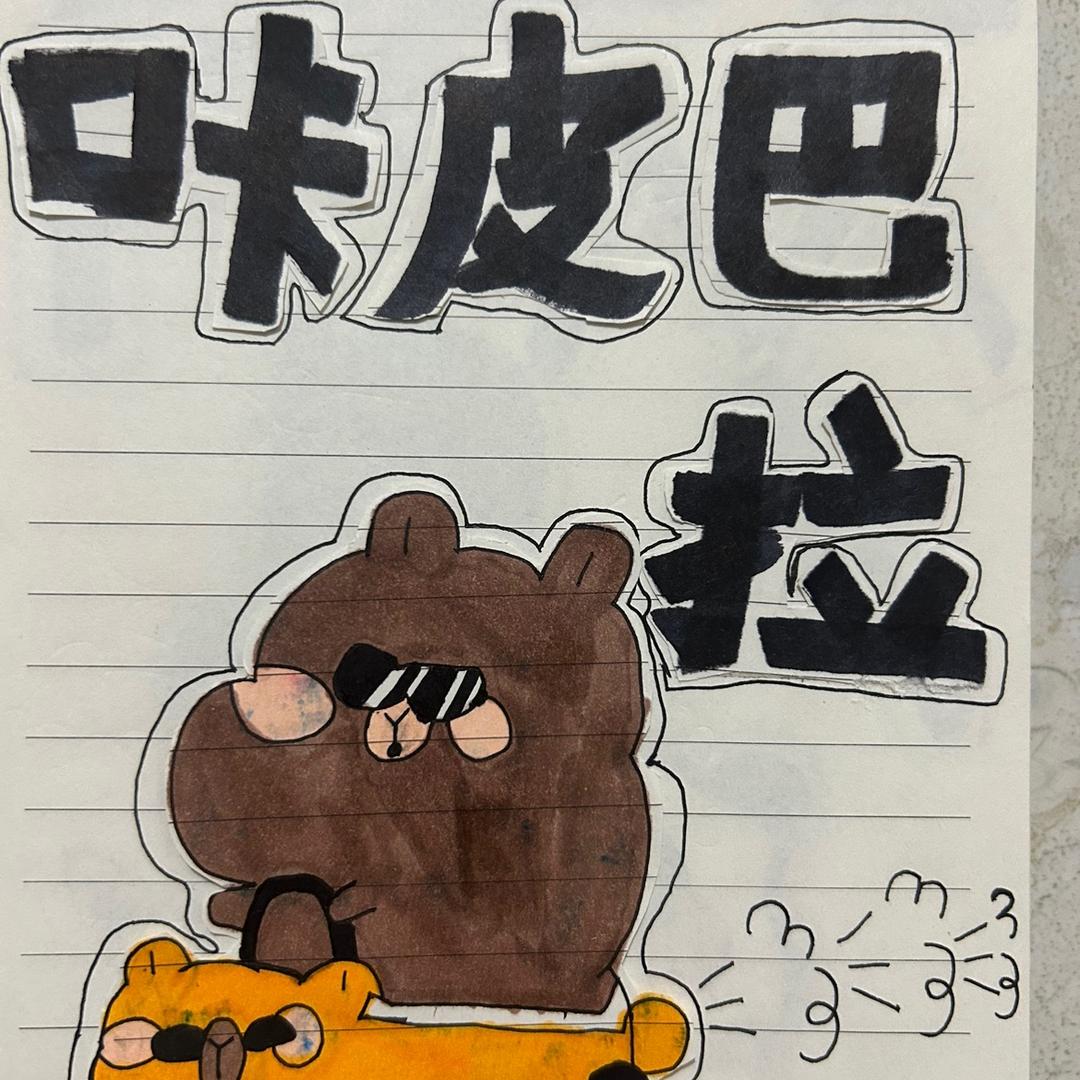 咔皮巴
拉